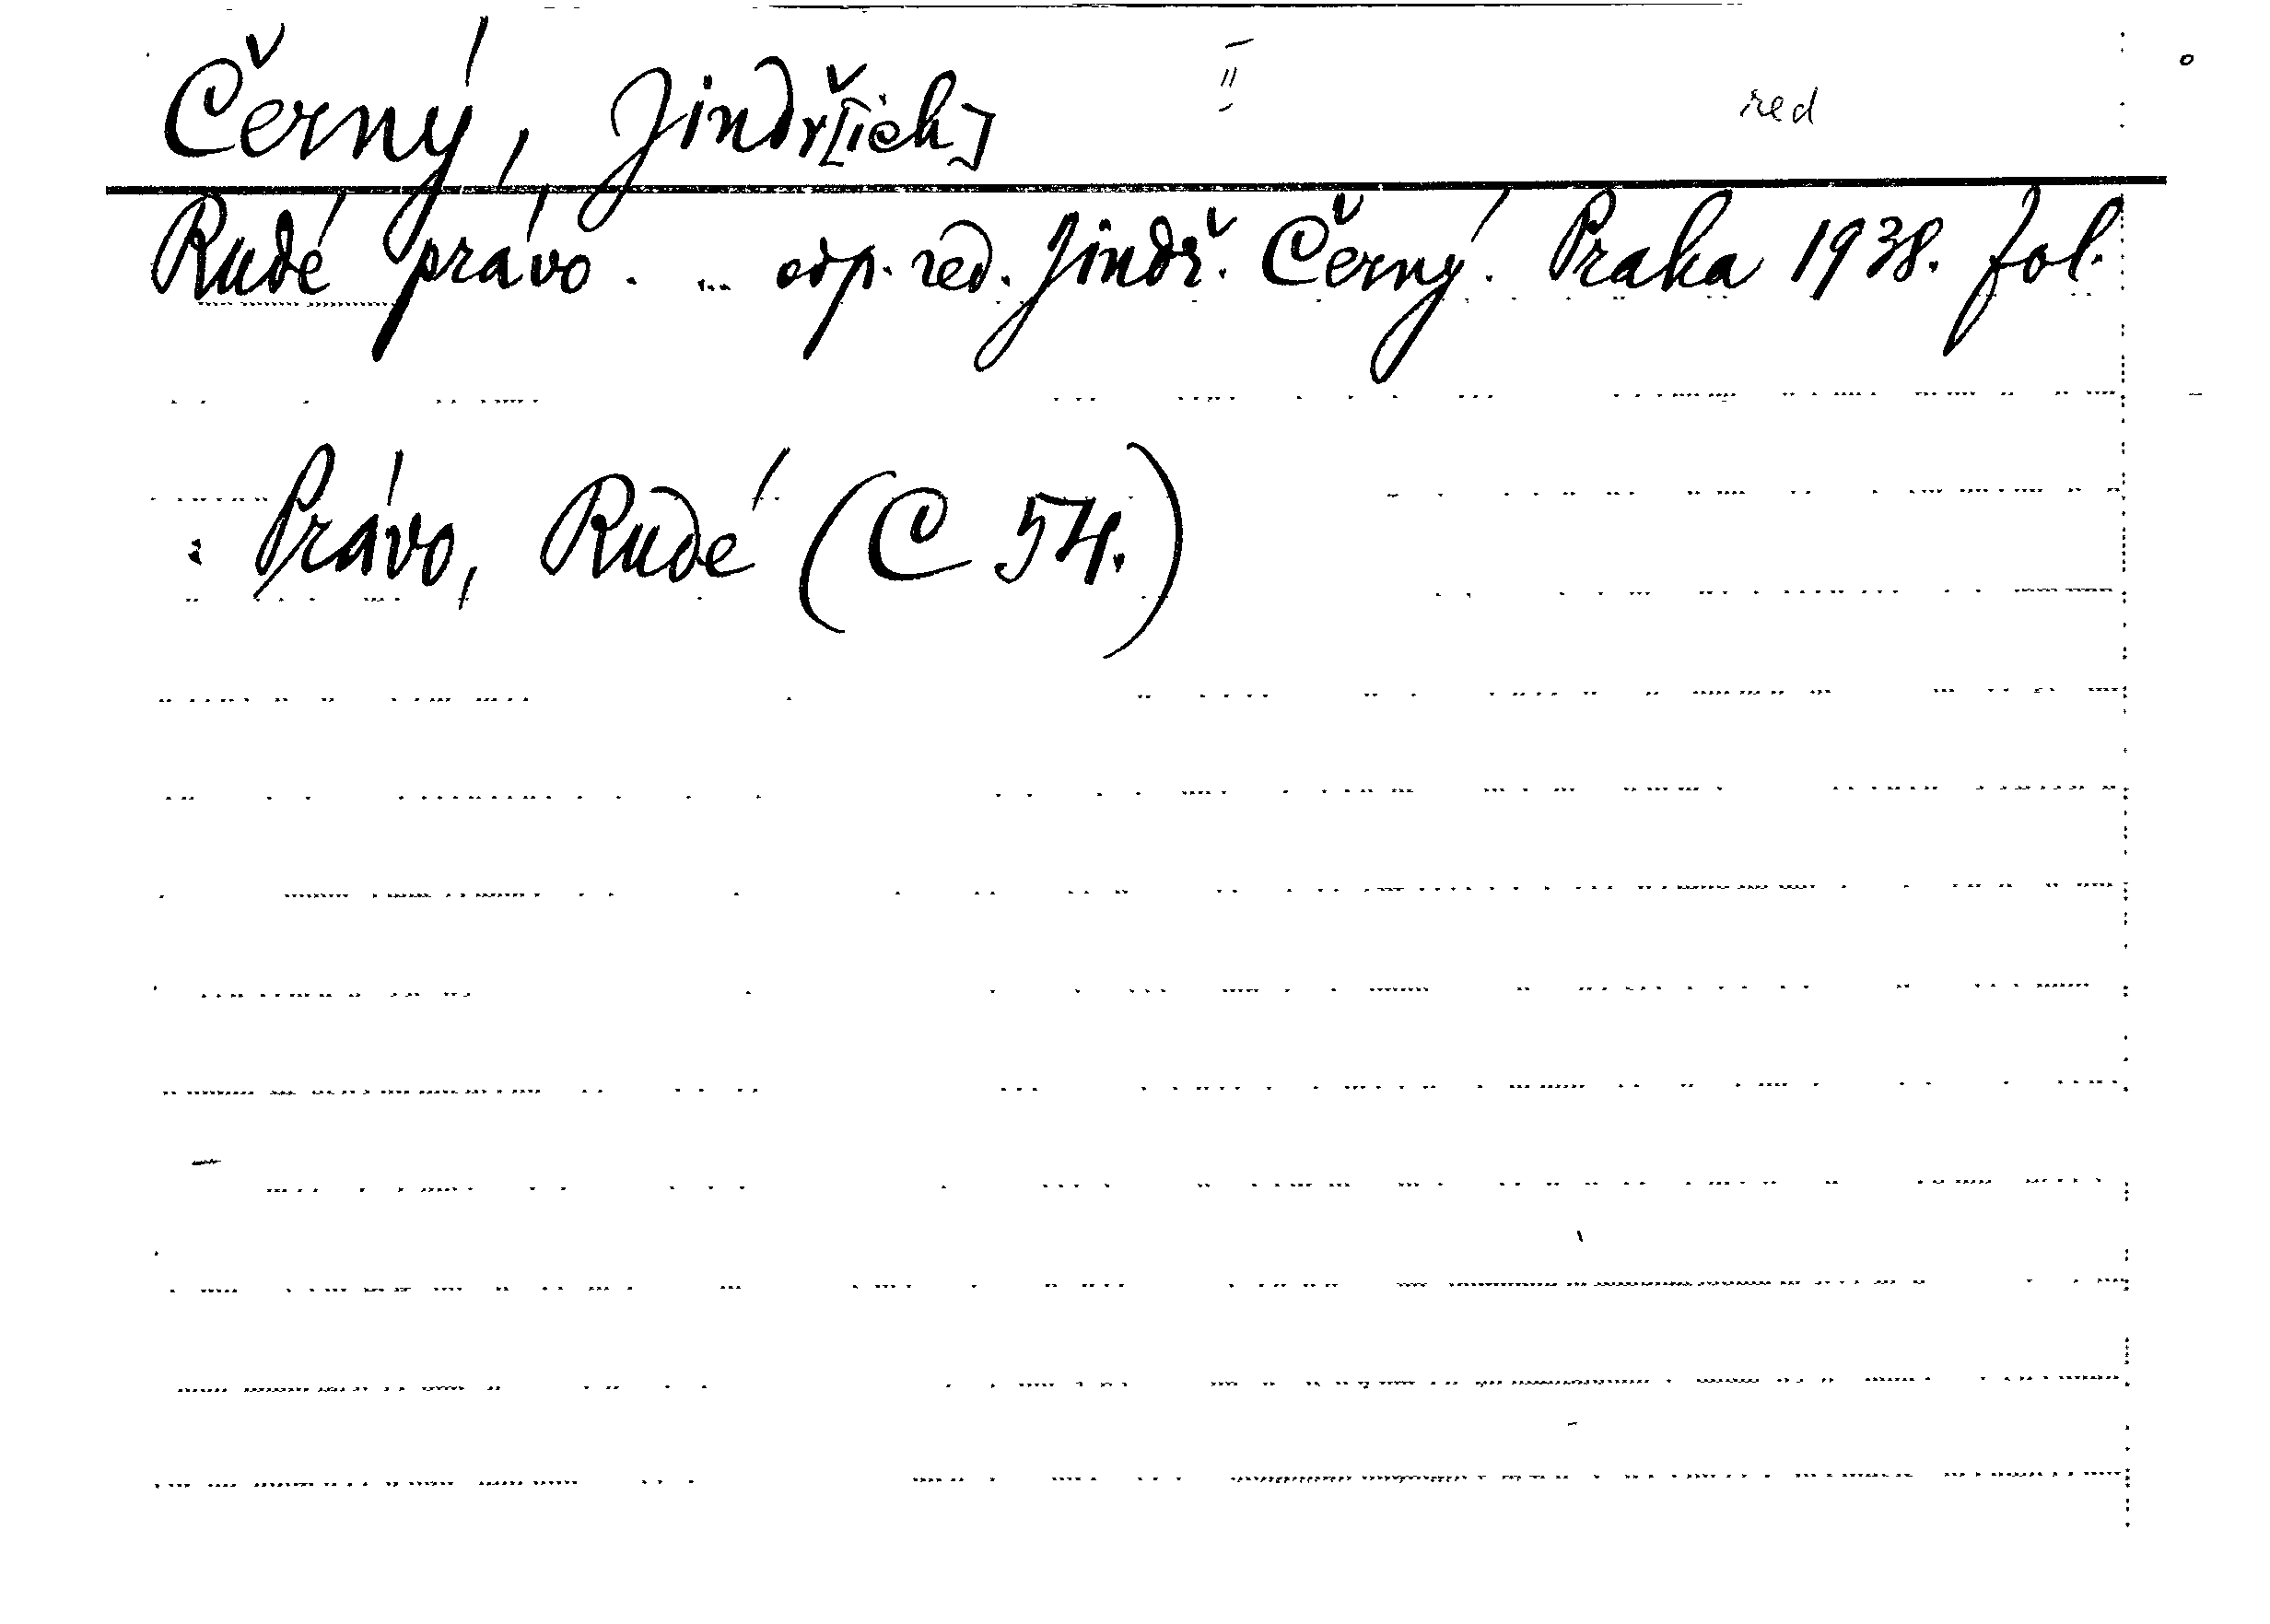 Černý, Jindř[ich] II red
Rudé právo. ... odp. red. Jindř. Černý. Praha 1938. fol.
: Právo, Rudé (C 54.)